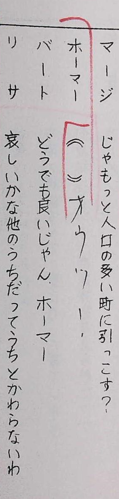 マージ　じゃもっと人口の多い町に引っこす？
ホーマー　《　》オウッー、
バート　どうでも良いじゃん、ホーマー
リサ　哀しいかな他のうちだってうちとかわらないわ